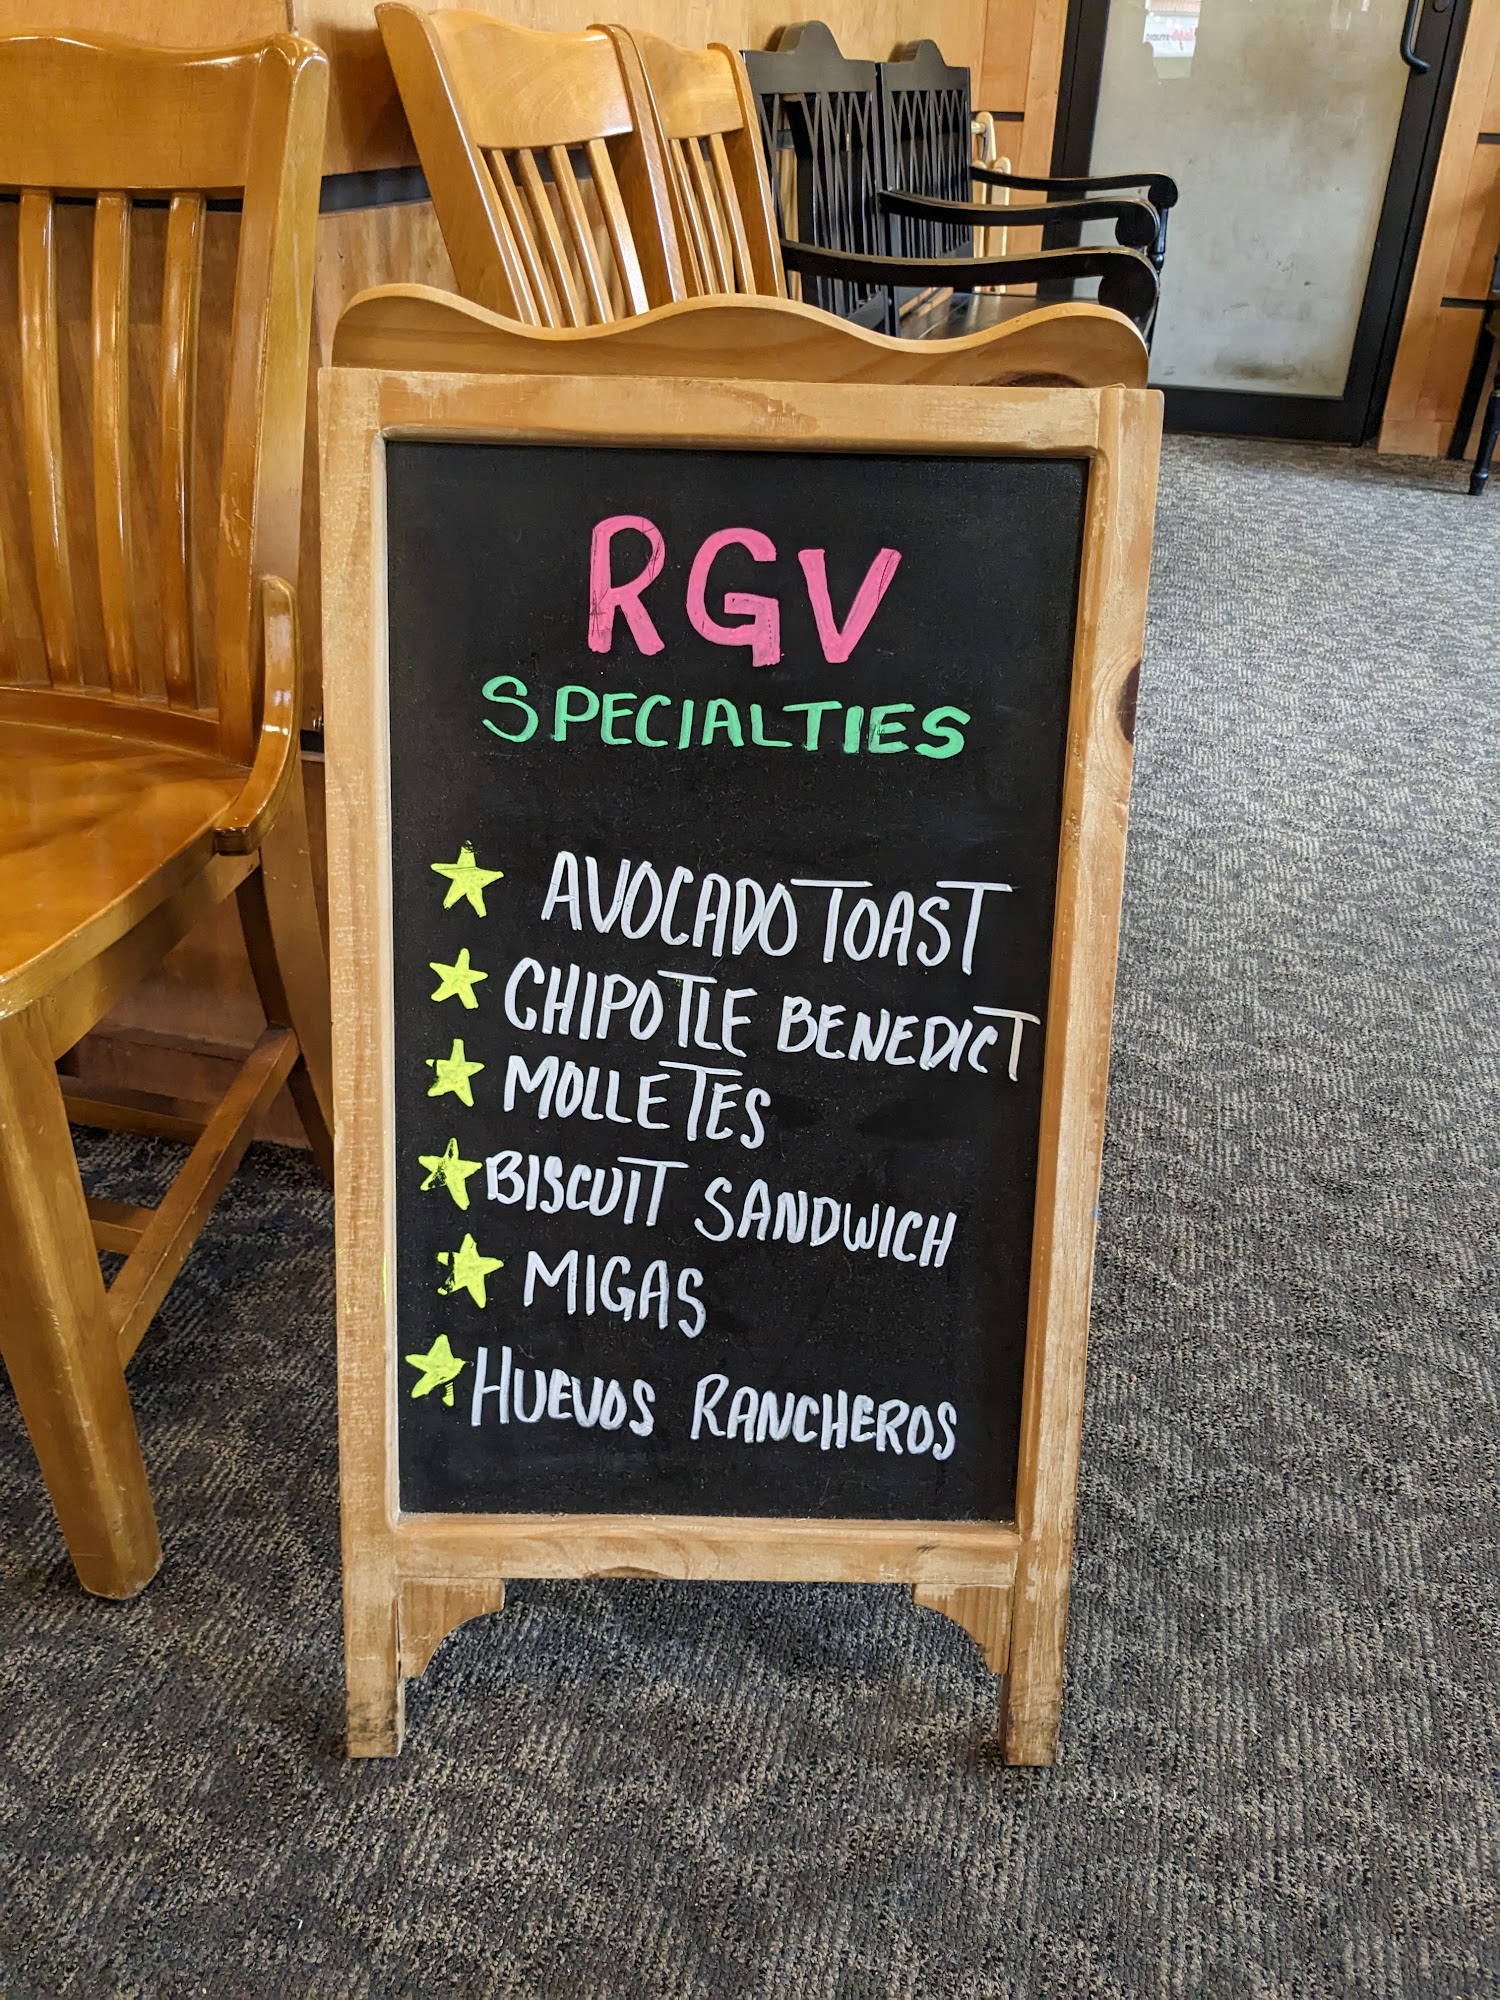 RGV
SPECIALTIES
AVOCADO TOAST
CHIPOTLE BENEDICT
MOLLETES
BISCUIT SANDWICH
MIGAS
HUEVOS RANCHEROS